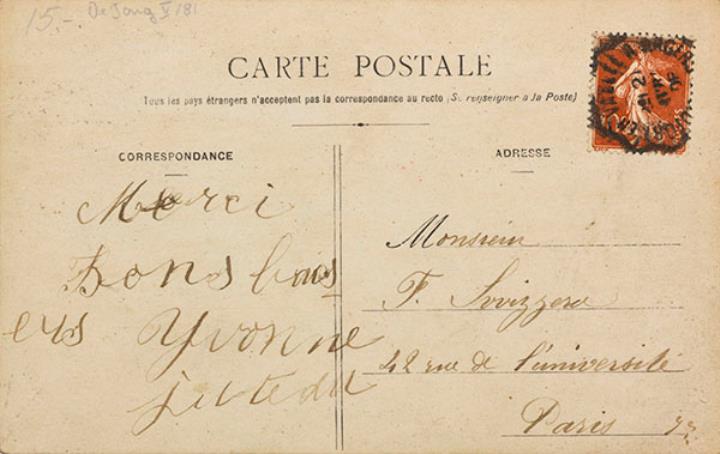 15.- De Jong V 181
CARTE POSTALE
Tous les pays étrangers n'acceptent pas la correspondance au recto (Se renseigner à la Poste)
CORRESPONDANCE
Merci
Bons
Yvonne
ADRESSE
Monsieur
F. Svizzera
42 rue de l'université
Paris